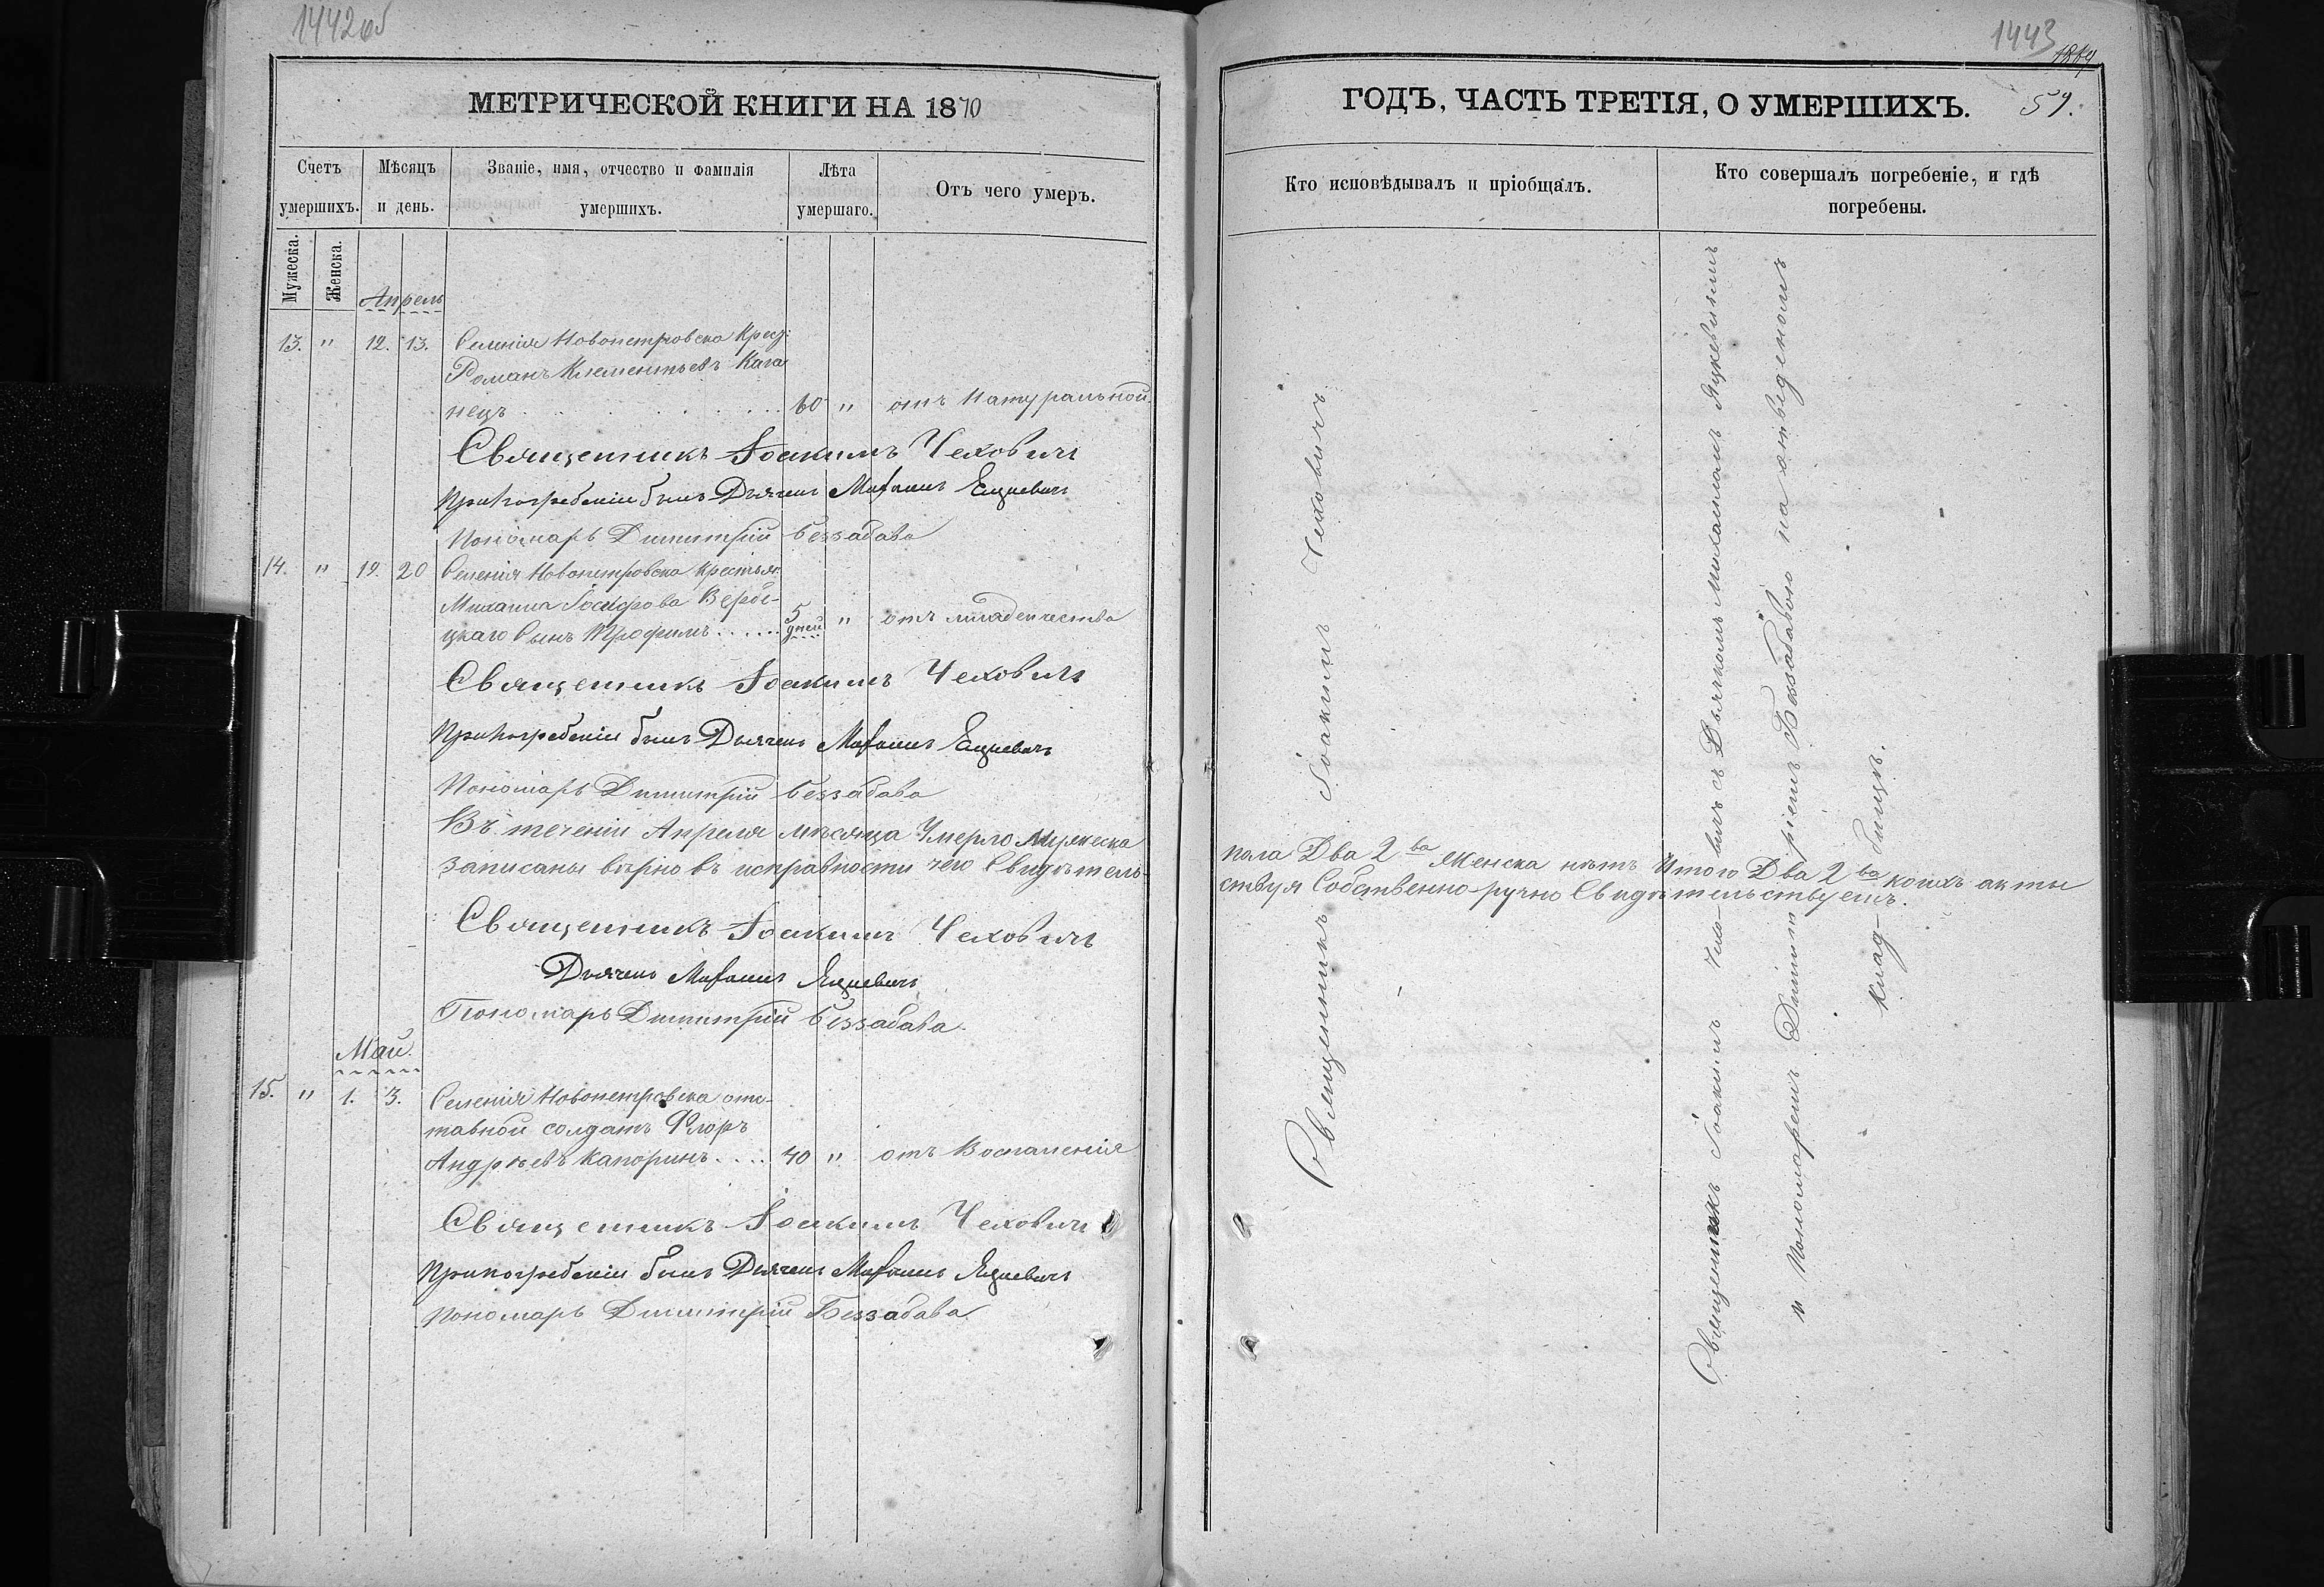 1442об
МЕТРИЧЕСКОЙ КНИГИ НА 1870
Счетъ умершихъ.
Мѣсяцъ и день.
Званіе, имя, отчество и фамилія умершихъ.
Лѣта умершаго.
Отъ чего умеръ.
Мужеска.
Женска.
Апрель
13. " 12. 13. Селенія Новопетровска Крест:
Романъ Клементьевъ Кага
нецъ . . . . . . . 60 " отъ Натуральной
Священникъ Іоакимъ Чеховичъ
При погребеніи былъ Дьячекъ Михаилъ Яцкевичъ
Пономарь Димитрій Беззабава
14. " 19. 20 Селенія Новопетровска Крестья:
Михаила Іосифова Вербе-
цкаго Сынъ Трофимъ . . . . . 5 дней " отъ младенчества
Священникъ Іоакимъ Чеховичъ
При погребеніи былъ Дьячекъ Михаилъ Яцкевичъ
Пономарь Димитрій Беззабава
Въ теченіи Апреля мѣсяца Умерло Мужеска
записаны вѣрно въ исправности чего Свидѣтель-
Священникъ Іоакимъ Чеховичъ
Дьячекъ Михаилъ Яцкевичъ
Пономарь Димитрій Беззабава.
Май.
15. " 1. 3. Селенія Новопетровска отс-
тавной солдатъ Флоръ
Андреевъ Капоринъ . . . . 40 " отъ Воспаленія
Священникъ Іоакимъ Чеховичъ
При погребеніи былъ Дьячекъ Михаилъ Яцкевичъ
Пономарь Димитрій Беззабава
1443
59.
ГОДЪ, ЧАСТЬ ТРЕТІЯ, О УМЕРШИХЪ.
Кто исповѣдывалъ и пріобщалъ.
Кто совершалъ погребеніе, и гдѣ погребены.
Священникъ Іоакимъ Чеховичъ
пола Два 2ва Женска нѣтъ Итого Два 2ва коихъ акты
ствуя Собственно-ручно Свидѣтельствуемъ.
Священникъ Іоакимъ Чехо-вичъ съ Дьячкомъ Михаиломъ Яцкевичемъ
и Пономаремъ Димит-ріемъ Беззабавою на отведенномъ
клад-бищѣ.